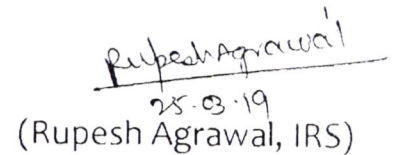 Rupesh Agrawal
25.03.19
(Rupesh Agrawal, IRS)